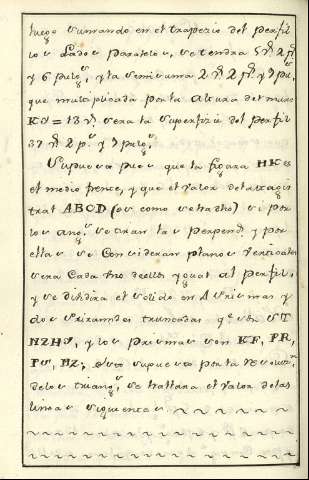 luego sumando en el trapezio del perfil
los Lados paralelos, se tendra 5 v.s 2 p.s
y 6 pulg.s, y la semisuma 2 v.s 2 p.s y 9 pul.s,
que multiplicada por la Altura del muro
= 13 v.s sera la Superfizie del perfil
37 v.s 2 p.s y 9 pulg.s
Supuesto pues que la figura HK es
el medio frente, y que el valor de la
tral ABCD (os como se ha dho) si por
los ang.s se tiran las perpend.s y por
ellas se Consideran planos Verticales
sera Cada uno de ellos ygual al perfil,
y se dividira el solido en 4 Prismas y
dos Piramides truncadas q.e son
y los prismas son KF, PR,
esto supuesto por la
de los triang.s se hallara el valor de las
lineas siguientes